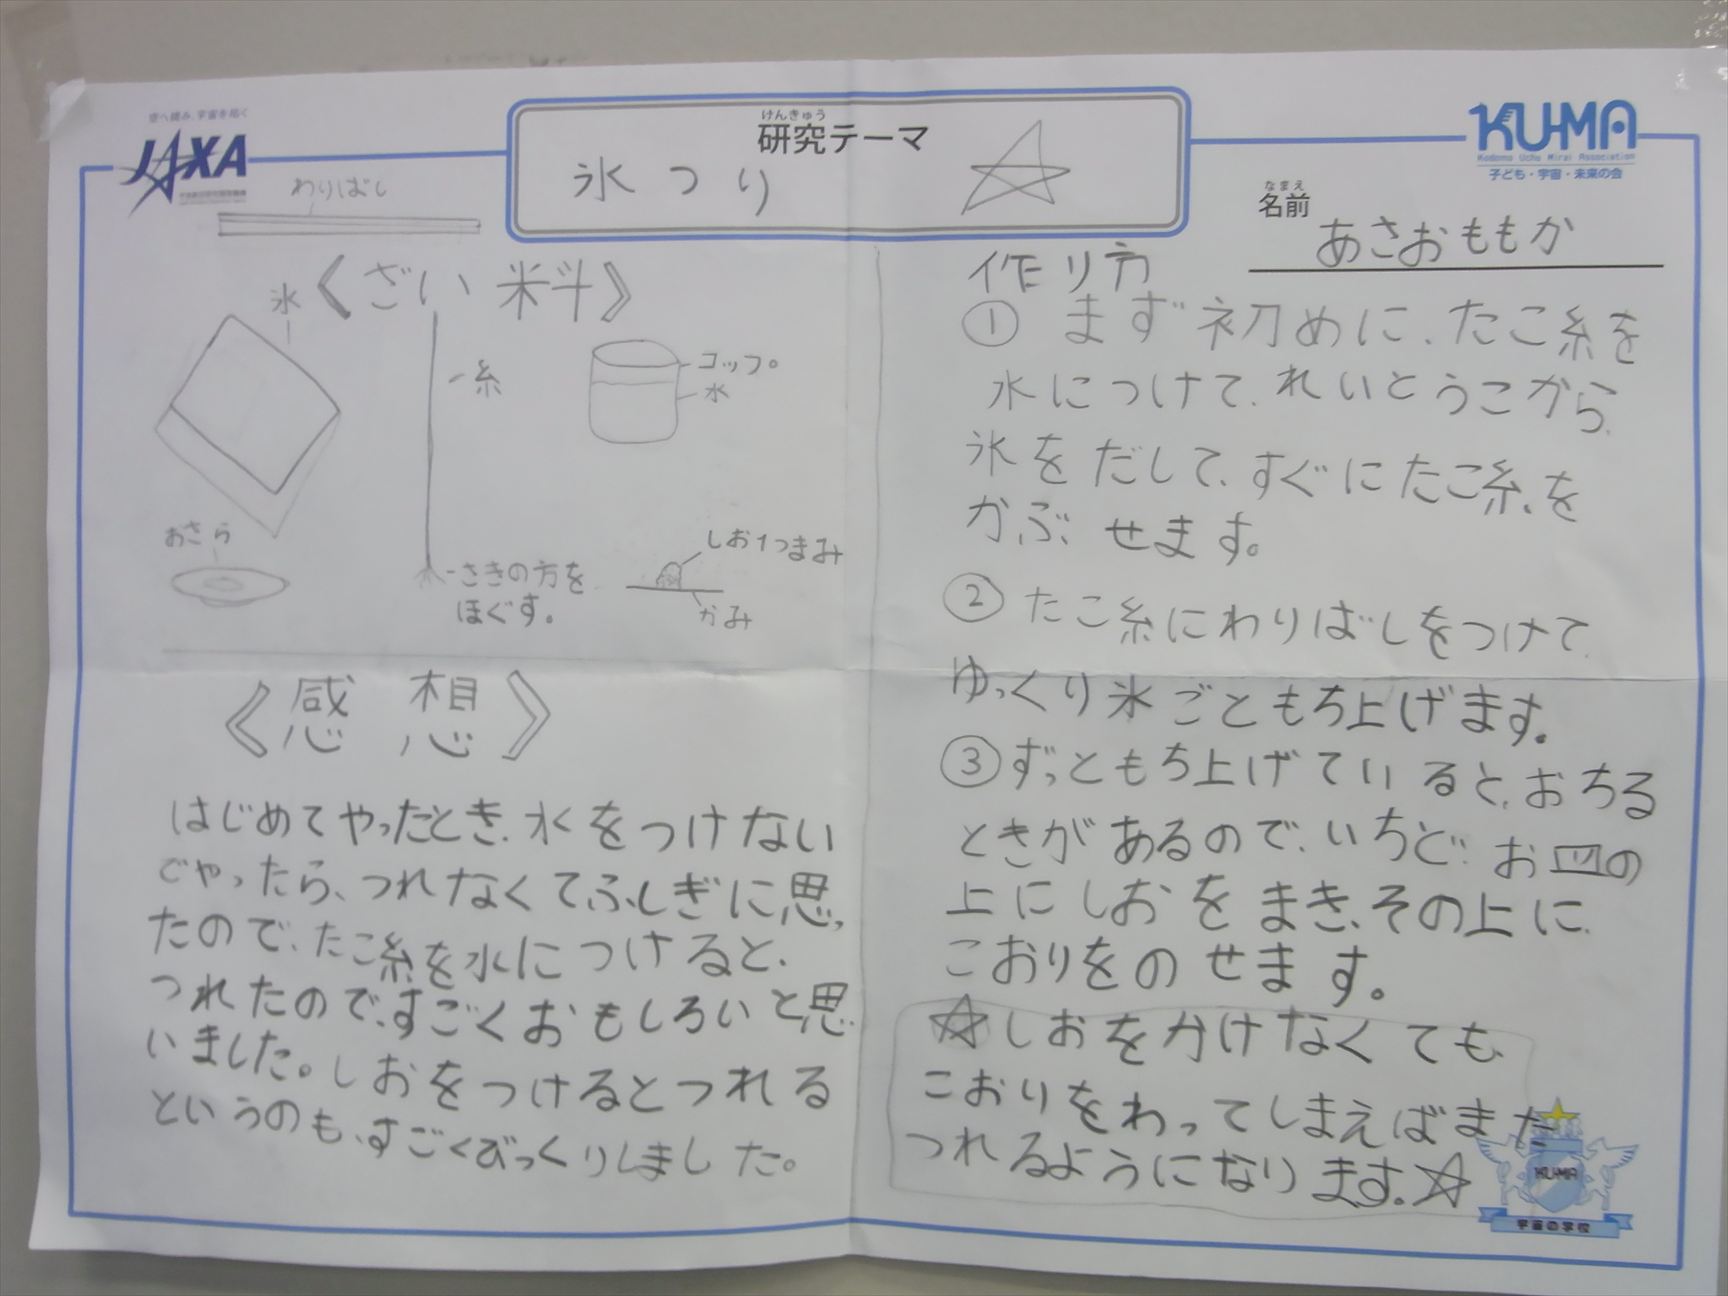 空へ挑み、宇宙を拓く
JAXA
けんきゅう
研究テーマ
氷つり
KU-MA
Kodomo Uchu Mirai Association
子ども・宇宙・未来の会
なまえ
名前
あさおももか
わりばし
《ざい料》
氷
糸
コップ
水
おさら
さきの方を
ほぐす。
しお1つまみ
かみ
《感想》
はじめてやったとき、水をつけない
でやったら、つれなくてふしぎに思っ
たので、たこ糸を水につけると、
つれたので、すごくおもしろいと思
いました。しおをつけるとつれる
というのも、すごくびっくりしました。
作り方
① まず初めに、たこ糸を
水につけて、れいとうこから
氷をだして、すぐにたこ糸を
かぶせます。
② たこ糸にわりばしをつけて
ゆっくり氷ごともち上げます。
③ ずっともち上げていると、おちる
ときがあるので、いちど、お皿の
上にしおをまき、その上に
こおりをのせます。
☆しおをかけなくても
こおりをわってしまえばまた
つれるようになります。☆
KU-MA
宇宙の学校